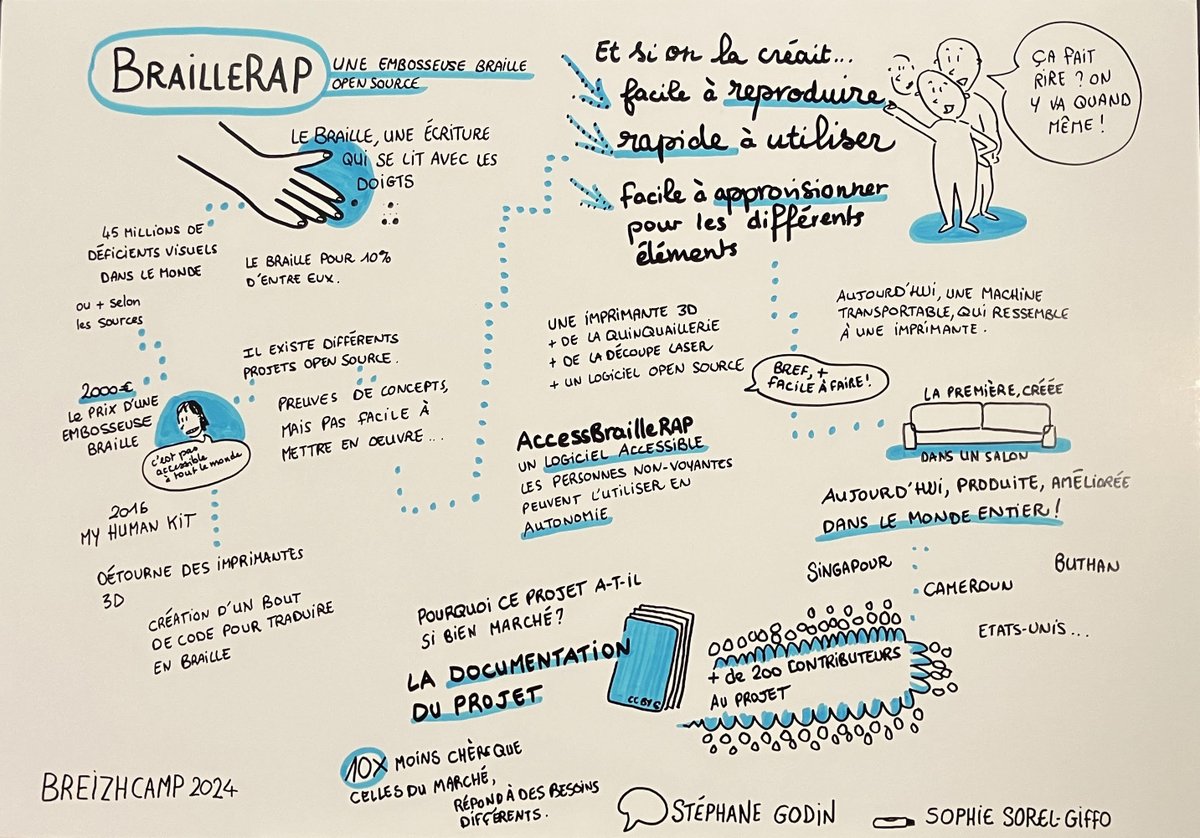 BRAILLERAP
UNE EMBOSSEUSE BRAILLE
OPEN SOURCE
LE BRAILLE, UNE ÉCRITURE
QUI SE LIT AVEC LES
DOIGTS
45 MILLIONS DE
DÉFICIENTS VISUELS
DANS LE MONDE
ou + selon
les sources
LE BRAILLE POUR 10%
D'ENTRE EUX.
2000€
LE PRIX D'UNE
EMBOSSEUSE
BRAILLE
c'est pas
accessible
à tout le monde
IL EXISTE DIFFÉRENTS
PROJETS OPEN SOURCE.
PREUVES DE CONCEPTS,
MAIS PAS FACILE À
METTRE EN OEUVRE...
2016
MY HUMAN KIT
DÉTOURNE DES IMPRIMANTES
3D
CRÉATION D'UN BOUT
DE CODE POUR TRADUIRE
EN BRAILLE
Et si on la créait...
facile à reproduire
rapide à utiliser
facile à approvisionner
pour les différents
éléments
ÇA FAIT
RIRE ? ON
Y VA QUAND
MÊME !
UNE IMPRIMANTE 3D
+ DE LA QUINQUAILLERIE
+ DE LA DÉCOUPE LASER
+ UN LOGICIEL OPEN SOURCE
BREF, +
FACILE À FAIRE !
AccessBrailleRAP
UN LOGICIEL ACCESSIBLE
LES PERSONNES NON-VOYANTES
PEUVENT L'UTILISER EN
AUTONOMIE
AUJOURD'HUI, UNE MACHINE
TRANSPORTABLE, QUI RESSEMBLE
À UNE IMPRIMANTE.
LA PREMIÈRE, CRÉÉE
DANS UN SALON
AUJOURD'HUI, PRODUITE, AMÉLIORÉE
DANS LE MONDE ENTIER !
SINGAPOUR
BUTHAN
CAMEROUN
ETATS-UNIS...
POURQUOI CE PROJET A-T-IL
SI BIEN MARCHÉ ?
LA DOCUMENTATION
DU PROJET
CC BY S
+ de 200 CONTRIBUTEURS
AU PROJET
10X MOINS CHÈRE QUE
CELLES DU MARCHÉ,
RÉPOND À DES BESOINS
DIFFÉRENTS.
BREIZHCAMP 2024
STÉPHANE GODIN
SOPHIE SOREL-GIFFO